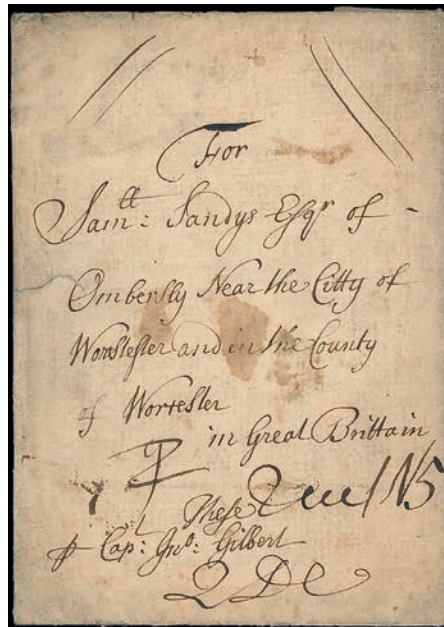 For
Samll: Sandys Esqr of -
Ombersly Near the Citty of
Worstester and in the County
of Worcester
in Great Brittain
These
p Capt: Jno: Gilbert
QDC